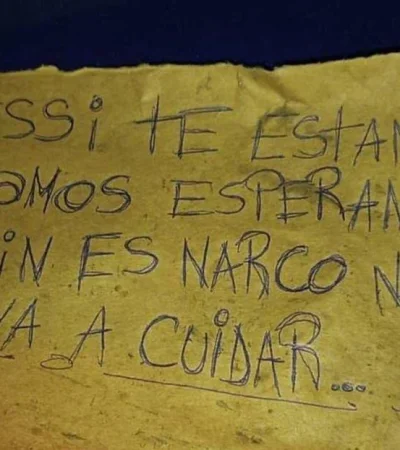 SSi TE ESTAM
AMOS ESPERAN
iN ES NARCO N
VA A CUiDAR...